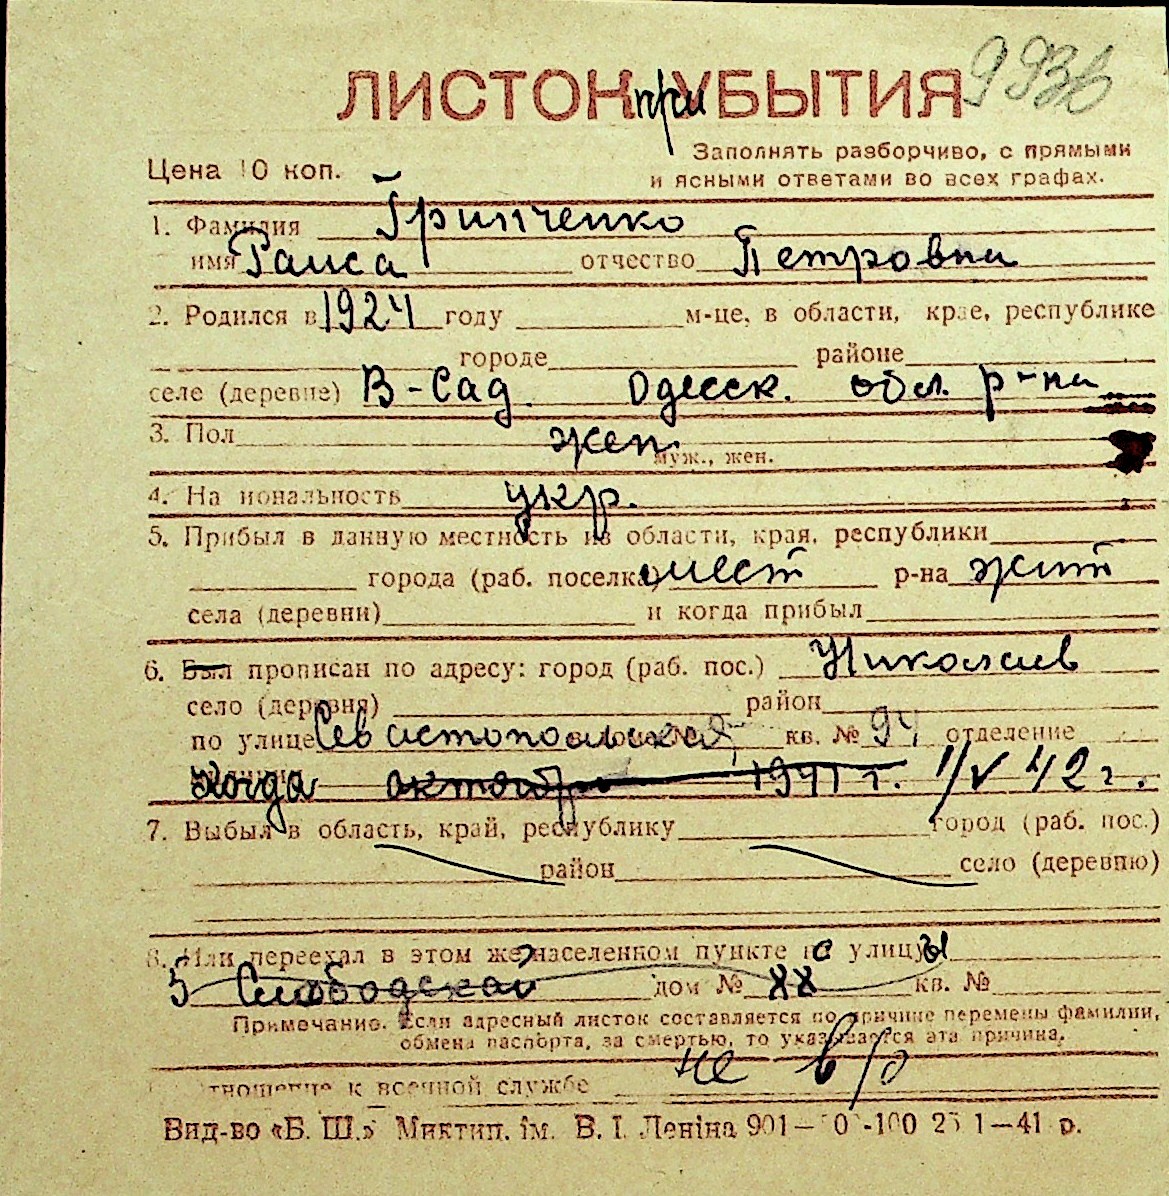 993
ЛИСТОК при УБЫТИЯ
Цена 10 коп.
Заполнять разборчиво, с прямыми
и ясными ответами во всех графах.
1. Фамилия Гринченко
имя Раиса отчество Петровна
2. Родился в 1924 году м-це, в области, крае, республике
городе районе
селе (деревне) В-Сад. Одесск. обл. р-на
3. Пол жен.
муж., жен.
4. На иональность укр.
5. Прибыл в данную местность из области, края, республики
города (раб. поселка) мест р-на жит
села (деревни) и когда прибыл
6. Был прописан по адресу: город (раб. пос.) Николаев
село (деревня) район
по улице Севастопольская кв. № 94 отделение
когда октября 1941 г. 1/V 42 г.
7. Выбыл в область, край, республику город (раб. пос.)
район село (деревню)
8. Или переехал в этом же населенном пункте с улицы
5 Слободской дом № XX кв. №
Примечание. Если адресный листок составляется по причине перемены фамилии,
обмена паспорта, за смертью, то указывается эта причина.
тношение к военной службе не в/о
Вид-во «Б. Ш.» Миктип. ім. В. І. Леніна 901— 0 -100 25 1—41 р.